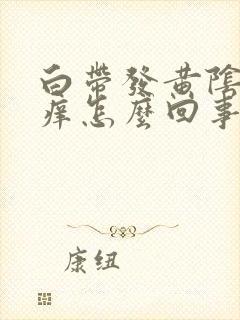 白帶發黃陰
癢怎麼回事
康纽